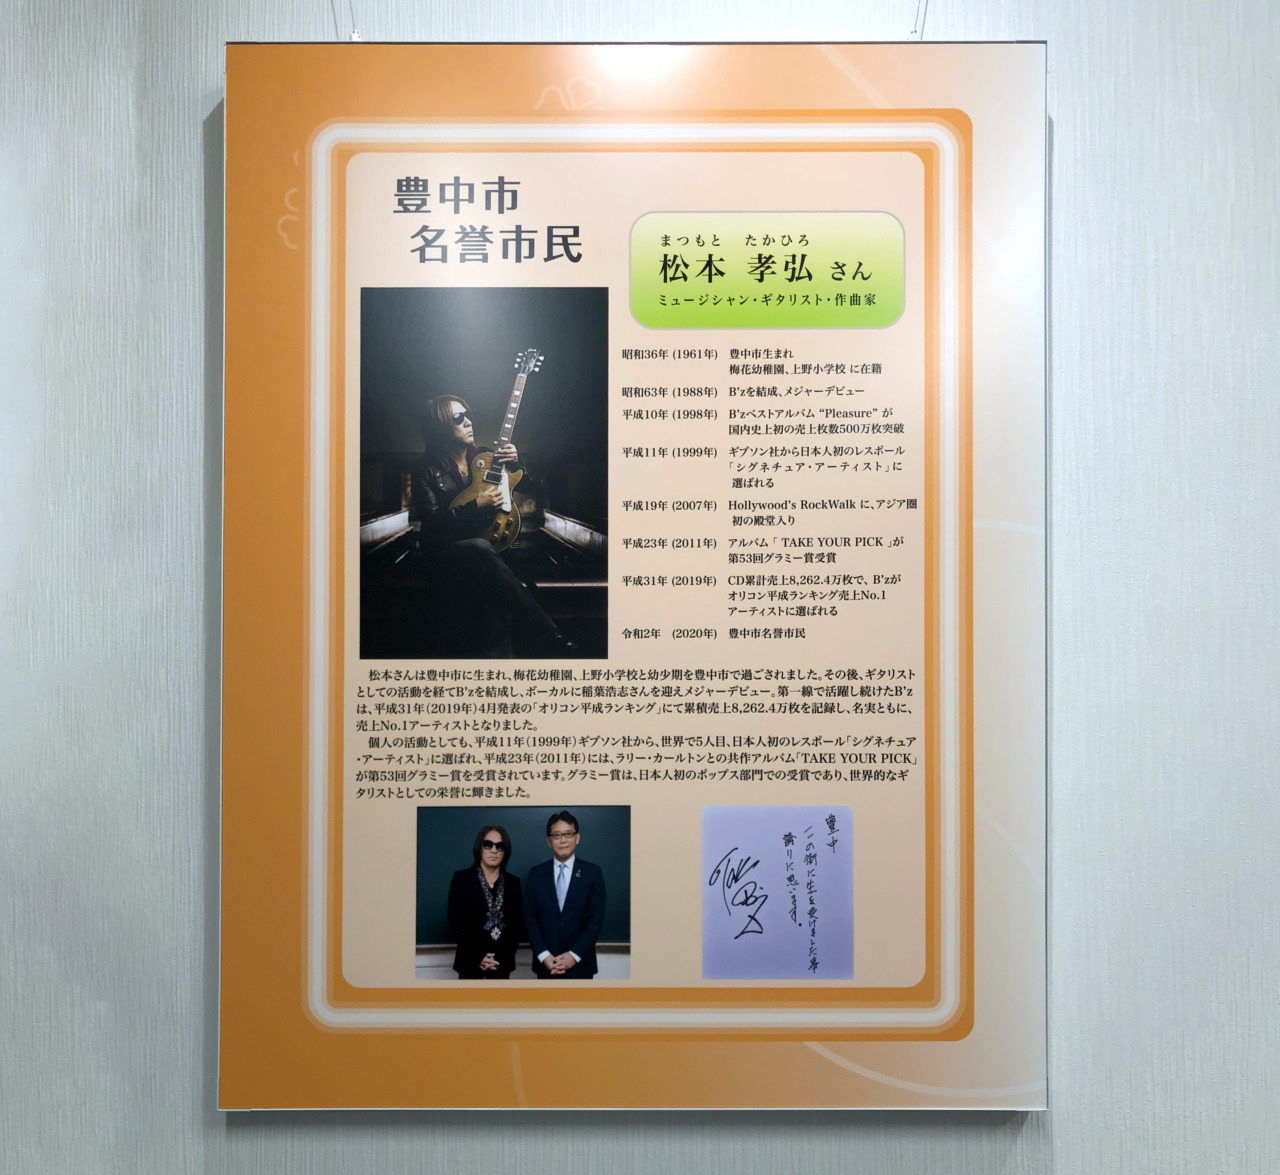 豊中市
名誉市民
まつもと たかひろ
松本 孝弘 さん
ミュージシャン・ギタリスト・作曲家
昭和36年 (1961年) 豊中市生まれ
梅花幼稚園、上野小学校 に在籍
昭和63年 (1988年) B'zを結成、メジャーデビュー
平成10年 (1998年) B'zベストアルバム “Pleasure” が
国内史上初の売上枚数500万枚突破
平成11年 (1999年) ギブソン社から日本人初のレスポール
「シグネチュア・アーティスト」に
選ばれる
平成19年 (2007年) Hollywood's RockWalk に、アジア圏
初の殿堂入り
平成23年 (2011年) アルバム「 TAKE YOUR PICK 」が
第53回グラミー賞受賞
平成31年 (2019年) CD累計売上8,262.4万枚で、B'zが
オリコン平成ランキング売上No.1
アーティストに選ばれる
令和2年 (2020年) 豊中市名誉市民
松本さんは豊中市に生まれ、梅花幼稚園、上野小学校と幼少期を豊中市で過ごされました。その後、ギタリスト
としての活動を経てB'zを結成し、ボーカルに稲葉浩志さんを迎えメジャーデビュー。第一線で活躍し続けたB'z
は、平成31年(2019年)4月発表の「オリコン平成ランキング」にて累積売上8,262.4万枚を記録し、名実ともに、
売上No.1アーティストとなりました。
個人の活動としても、平成11年(1999年)ギブソン社から、世界で5人目、日本人初のレスポール「シグネチュア
・アーティスト」に選ばれ、平成23年(2011年)には、ラリー・カールトンとの共作アルバム「TAKE YOUR PICK」
が第53回グラミー賞を受賞されています。グラミー賞は、日本人初のポップス部門での受賞であり、世界的なギ
タリストとしての栄誉に輝きました。
豊中
この街に生を受けました事
誇りに思います。